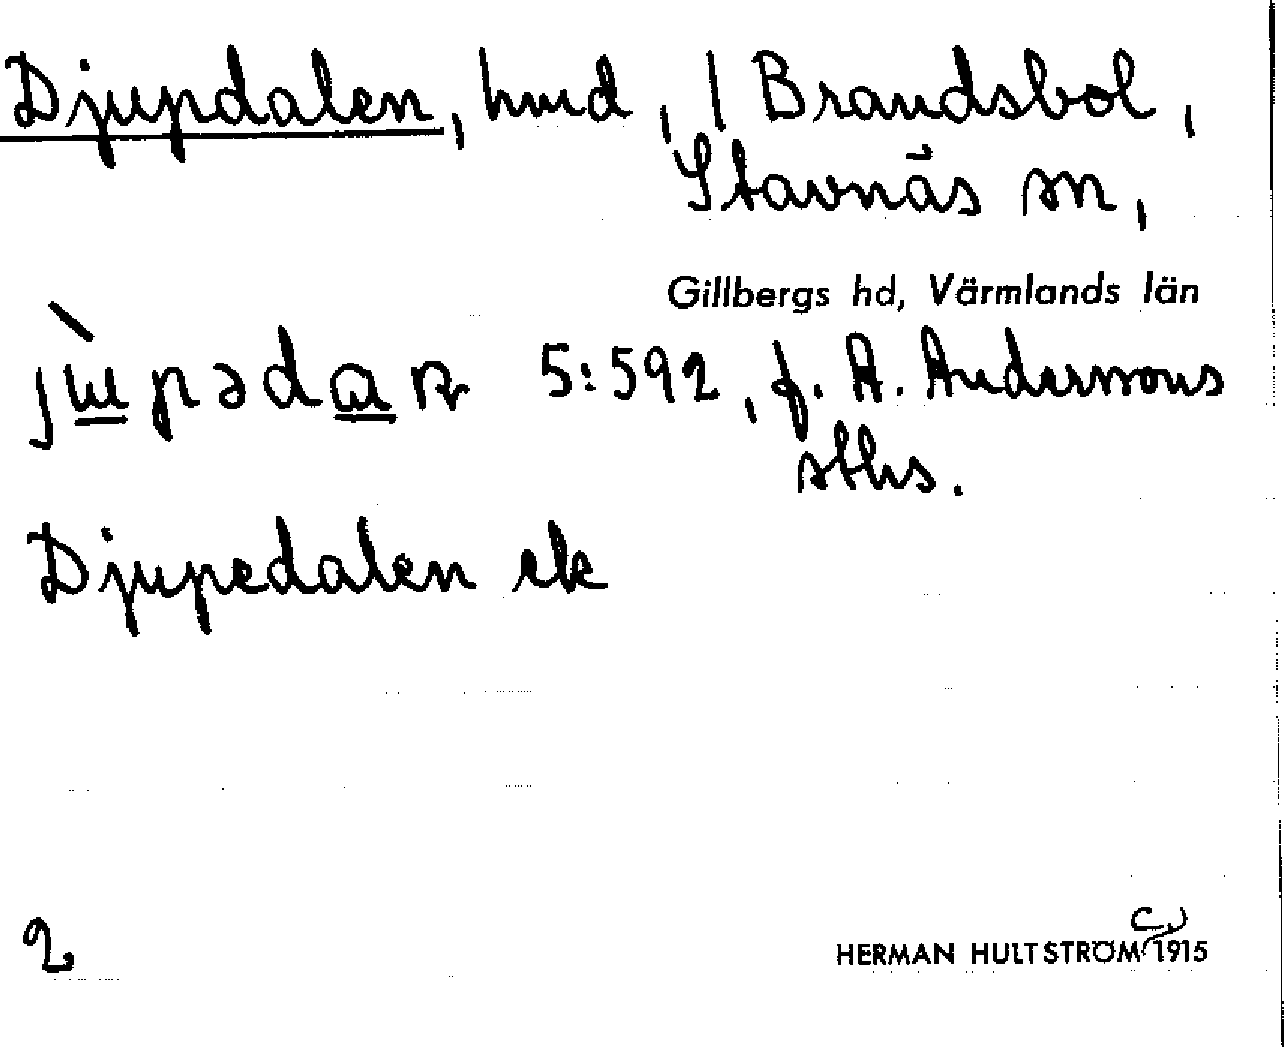 Djupdalen, hmd, 1 Brandsbol,
Stavnäs sn,
Gillbergs hd, Värmlands län
5:592, f. A. Anderssons
sths.
Djupedalen ek
2
HERMAN HULTSTRÖM 1915